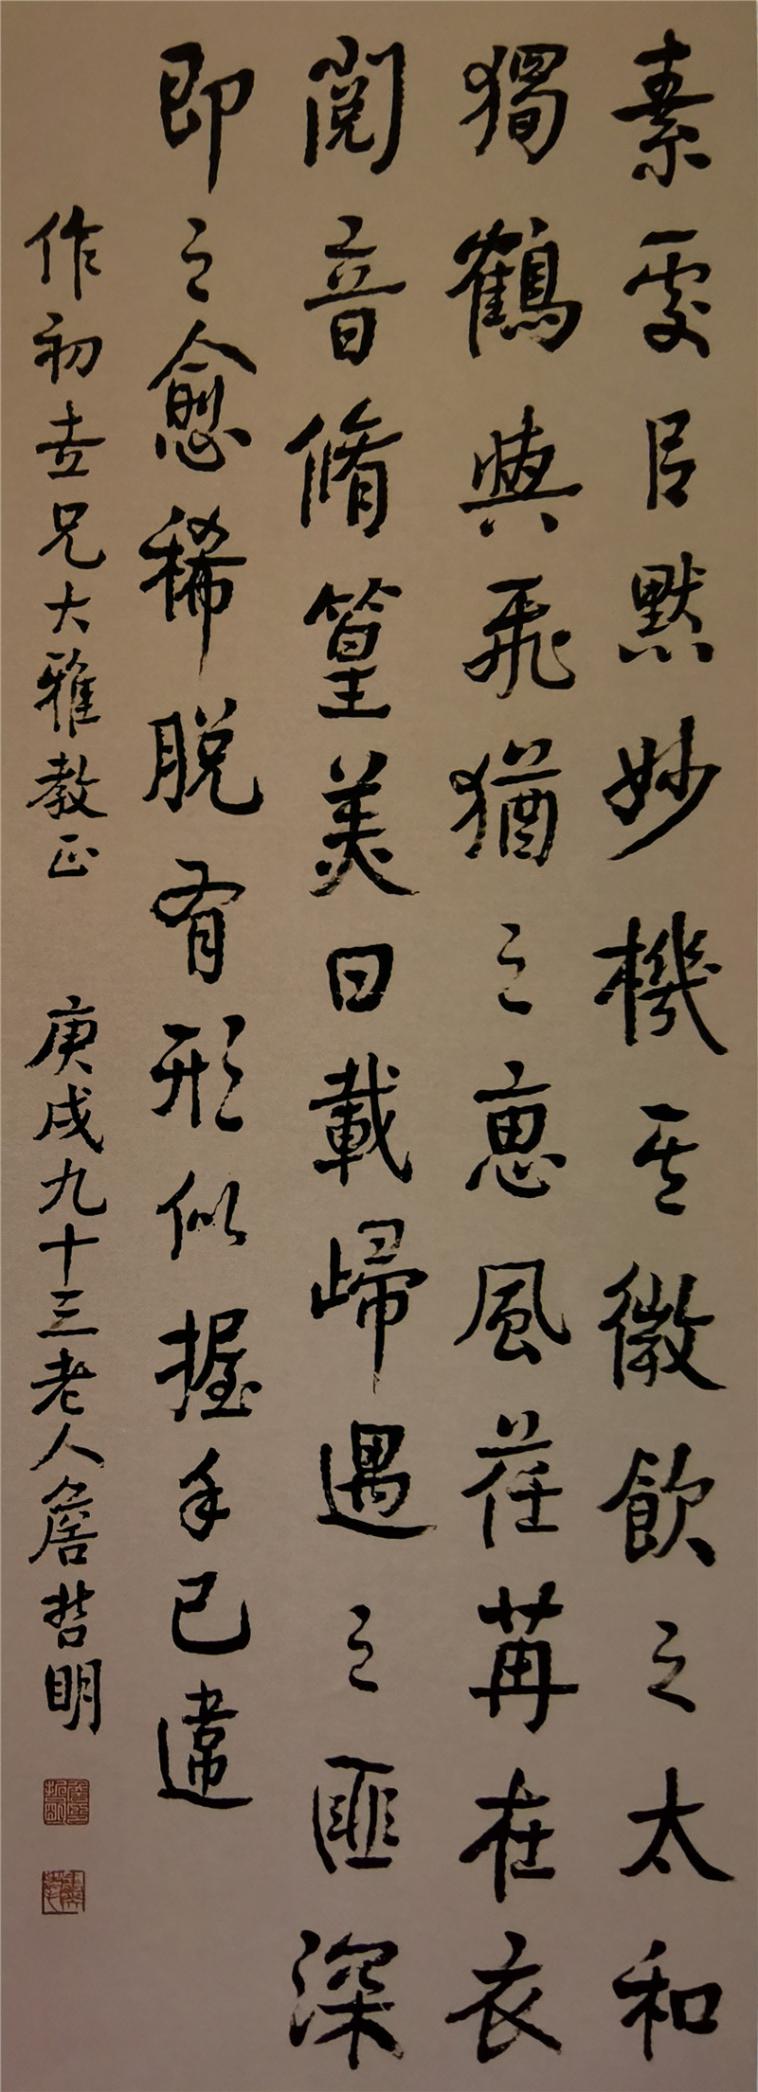 素處㠯默妙機其微飲之太和
獨鶴與飛猶之惠風荏苒在衣
閱音脩篁美曰載歸遇之匪深
即之愈稀脫有形似握手已違
作初吉兄大雅教正 庚戌九十三老人詹哲明